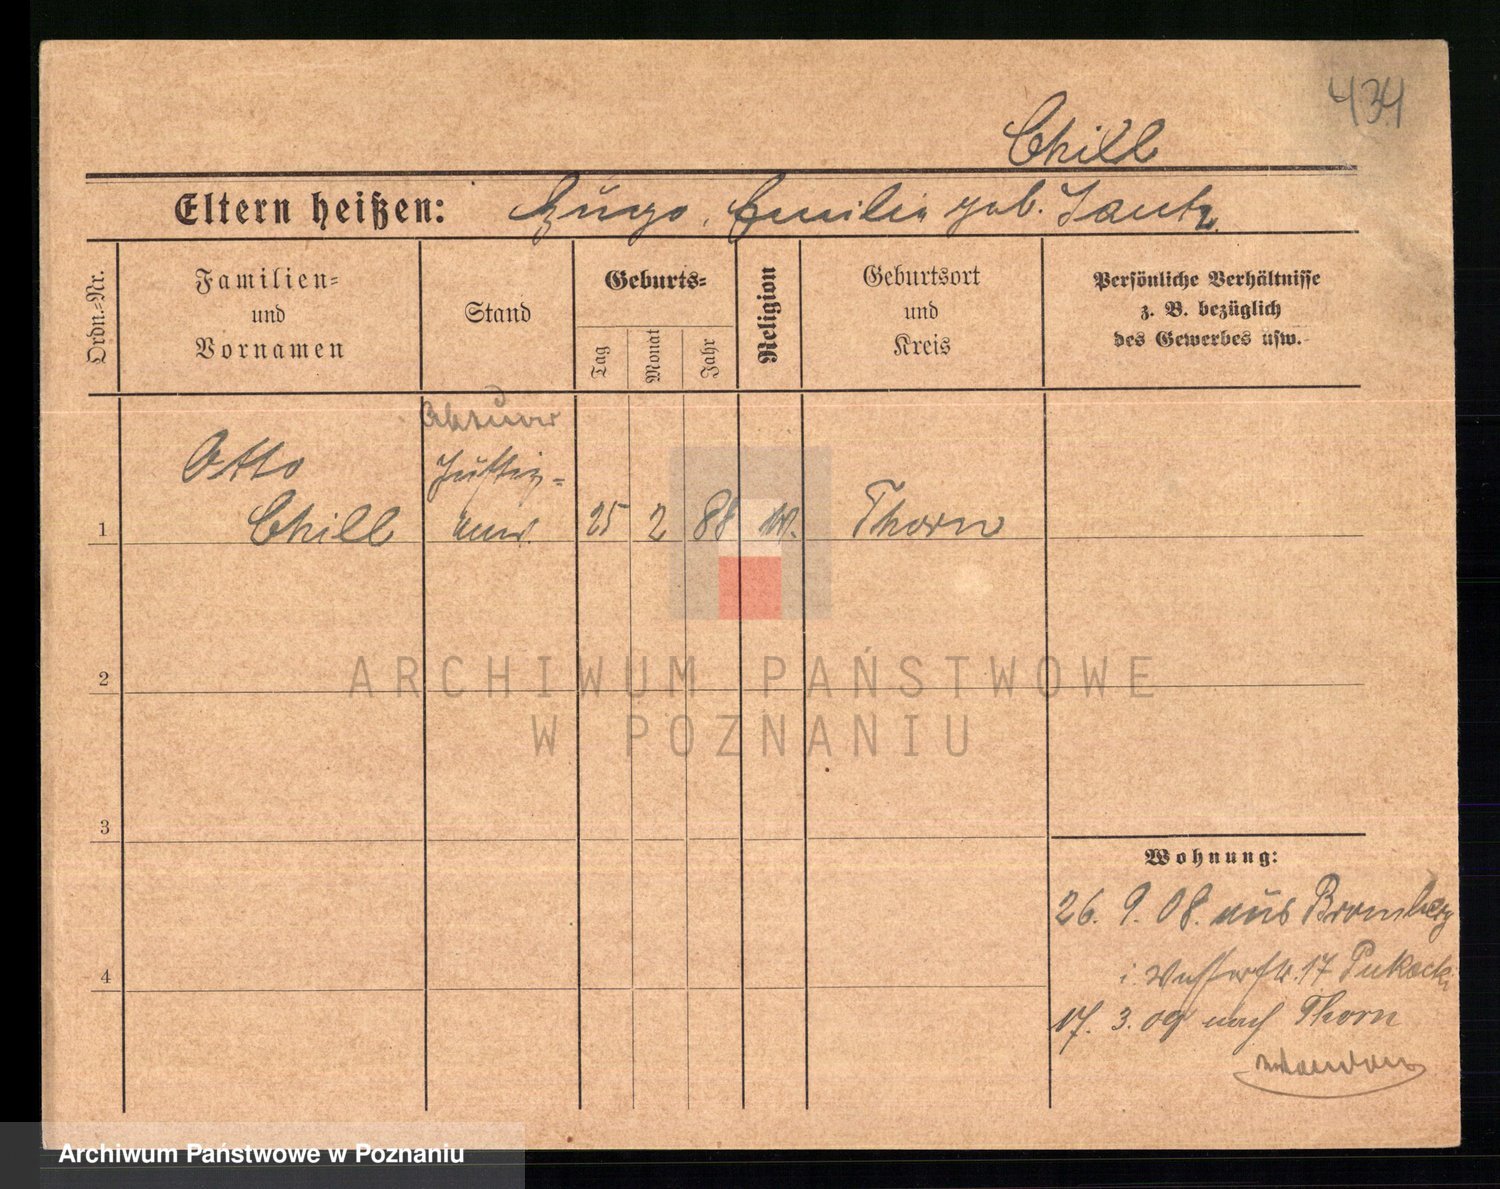 434
Chill
Eltern heißen: Hugo, Emilie geb. Jantz
Ordn.=Nr.
Familien=
und
Vornamen
Stand
Geburts=
Tag
Monat
Jahr
Religion
Geburtsort
und
Kreis
Persönliche Verhältnisse
z. B. bezüglich
des Gewerbes usw.
Aktuar
Otto Justiz=
1 Chill anw. 25 2 88 Thorn
2
3
4
ARCHIWUM PAŃSTWOWE
W POZNANIU
Wohnung:
26. 9. 08. aus Bromberg
17
17. 3. 09 nach Thorn
Archiwum Państwowe w Poznaniu